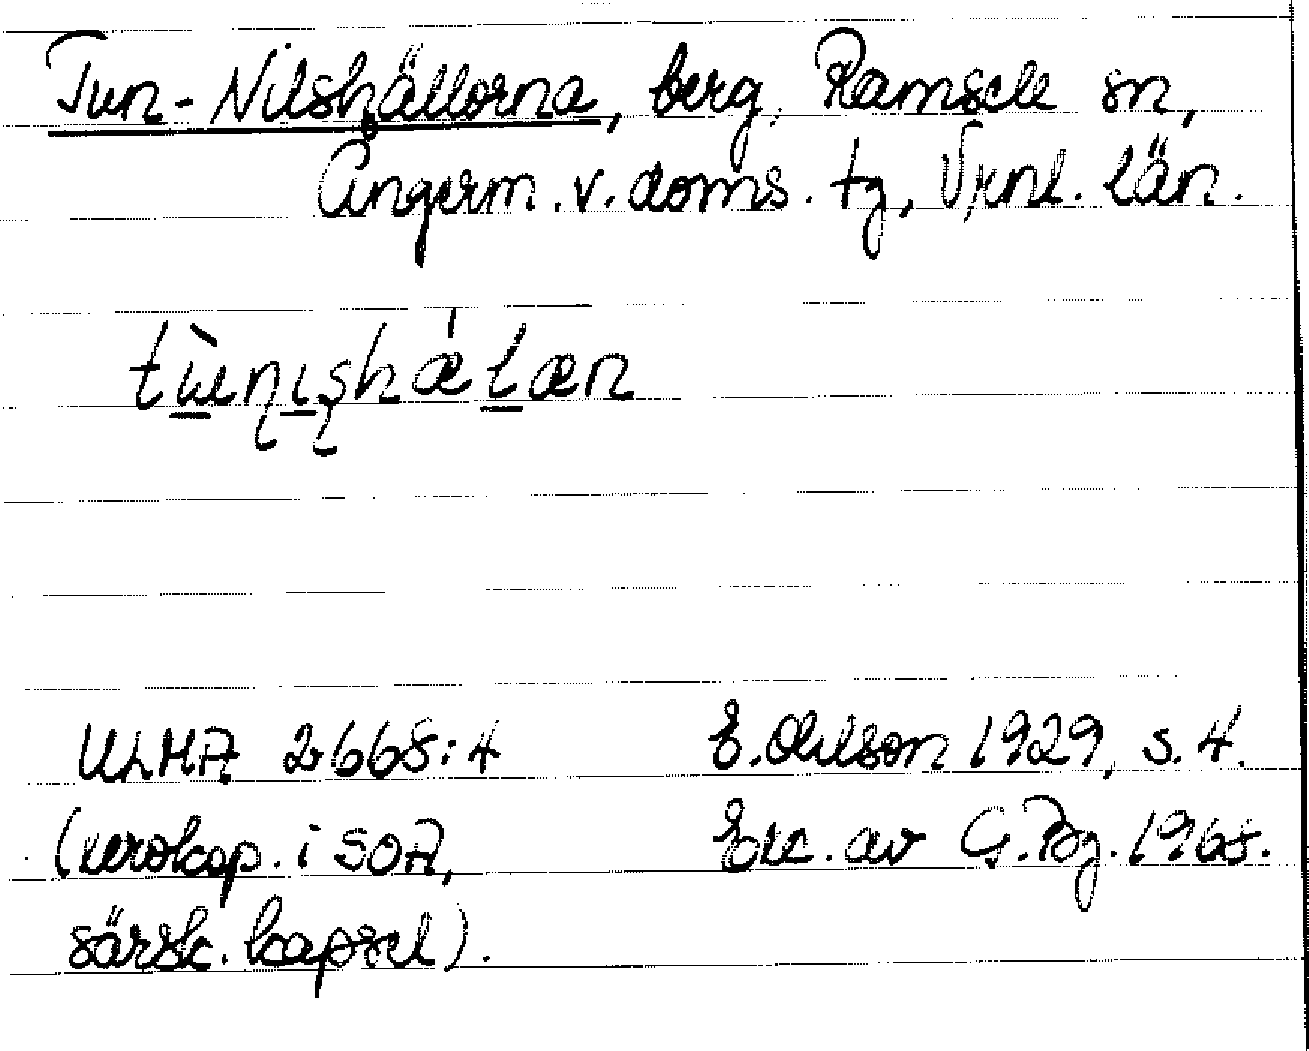 Tun-Nilshällorna, berg, Ramsele sn,
Ångerm. v. doms. tg, Vrnl. län.
ULMA 2668:4
E. Olilson 1929, s. 4.
(xeroxkop. i SOA,
Exc. av G. Bg. 1968.
särsk. kapsel).